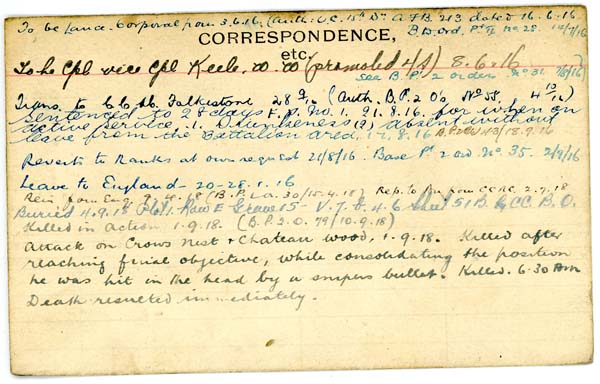 To be Lance Corporal from 3.6.16. (Auth: O.C. 15th Dn A.F.B. 213 dated 16.6.16.
B.D. ord. Pt II No 28.
CORRESPONDENCE,
etc.
To be Cpl vice Cpl Keele. W. W (promoted 4/S) 8.6.16
See B.P. 2 orders No 31
Trans. to C.C.A.C. Folkestone 28 (Auth. B.P. 2 O's No 58,
Sentenced to 28 days F.P. No. 1. 21.8.16 for when on
active service (1) Drunkenness (2) absent without
leave from the Battalion area 17.8.16 B.P.2 43/18.9.16
Reverts to Ranks at own request 21/8/16. Base Pt 2 ord. No. 35. 2/9/16
Leave to England 20-28.1.16
Rein. from Eng. 18 (B.P.2.O. 30/15.4.18) Rep. to from C.C.R.C. 2.9.18
Buried 4.9.18 Plot 1. Row E Grave 15 - V.7.d.4.6 Sheet 51B CCC B.O.
Killed in action 1.9.18. (B.P.2.O. 79/10.9.18)
Attack on Crows Nest & Chateau wood, 1.9.18. Killed after
reaching final objective, while consolidating the position
he was hit in the head by a snipers bullet. Killed. 6.30 Am
Death resulted immediately.